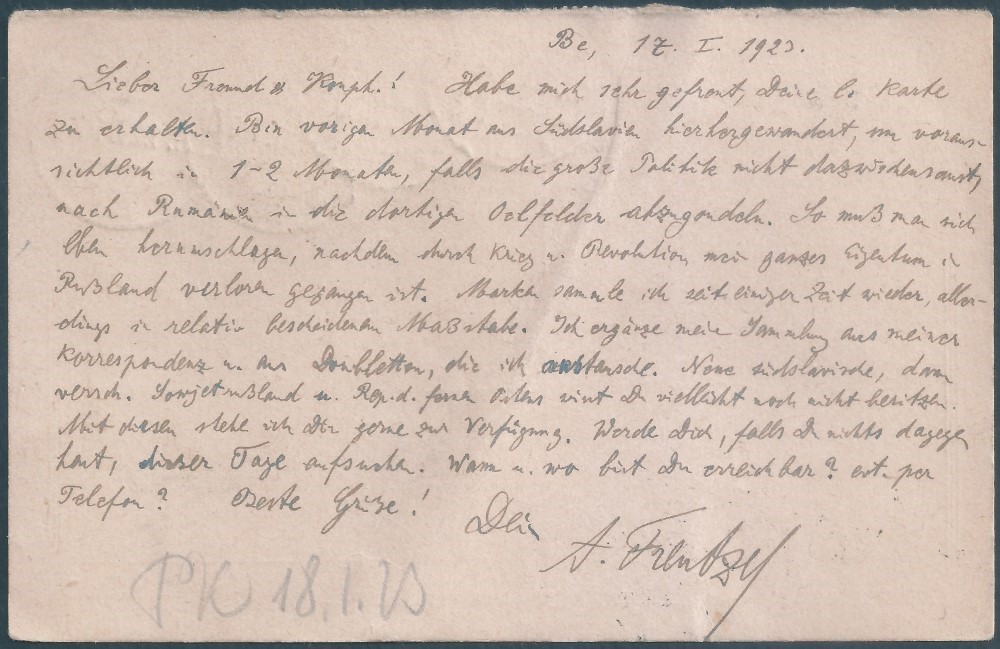 Be, 17. I. 1923.
Lieber Freund u Konph.! Habe mich sehr gefreut, Deine l. Karte
zu erhalten. Bin vorigen Monat aus Südslavien hierhergewandert, um voraus-
sichtlich in 1-2 Monaten, falls die große Politik nicht dazwischensaust,
nach Rumänien in die dortigen Oelfelder abzugondeln. So muß man sich
eben herumschlagen, nachdem durch Krieg u. Revolution mein ganzes Eigentum in
Rußland verloren gegangen ist. Marken sammle ich seit einiger Zeit wieder, aller-
dings in relativ bescheidenem Maßstabe. Ich ergänze meine Sammlung aus meiner
Korrespondenz u. aus Doubletten, die ich austausche. Neue südslavische, dann
versch. Sowjetrußland u. Rep. d. fernen Ostens wirst Du vielleicht noch nicht besitzen.
Mit diesen stehe ich Dir gerne zur Verfügung. Werde Dich, falls Du nichts dagegen
hast, dieser Tage aufsuchen. Wann u. wo bist Du erreichbar? evt. per
Telefon? Beste Grüße!
Dein
A. Frentzel
PK 18.1.23